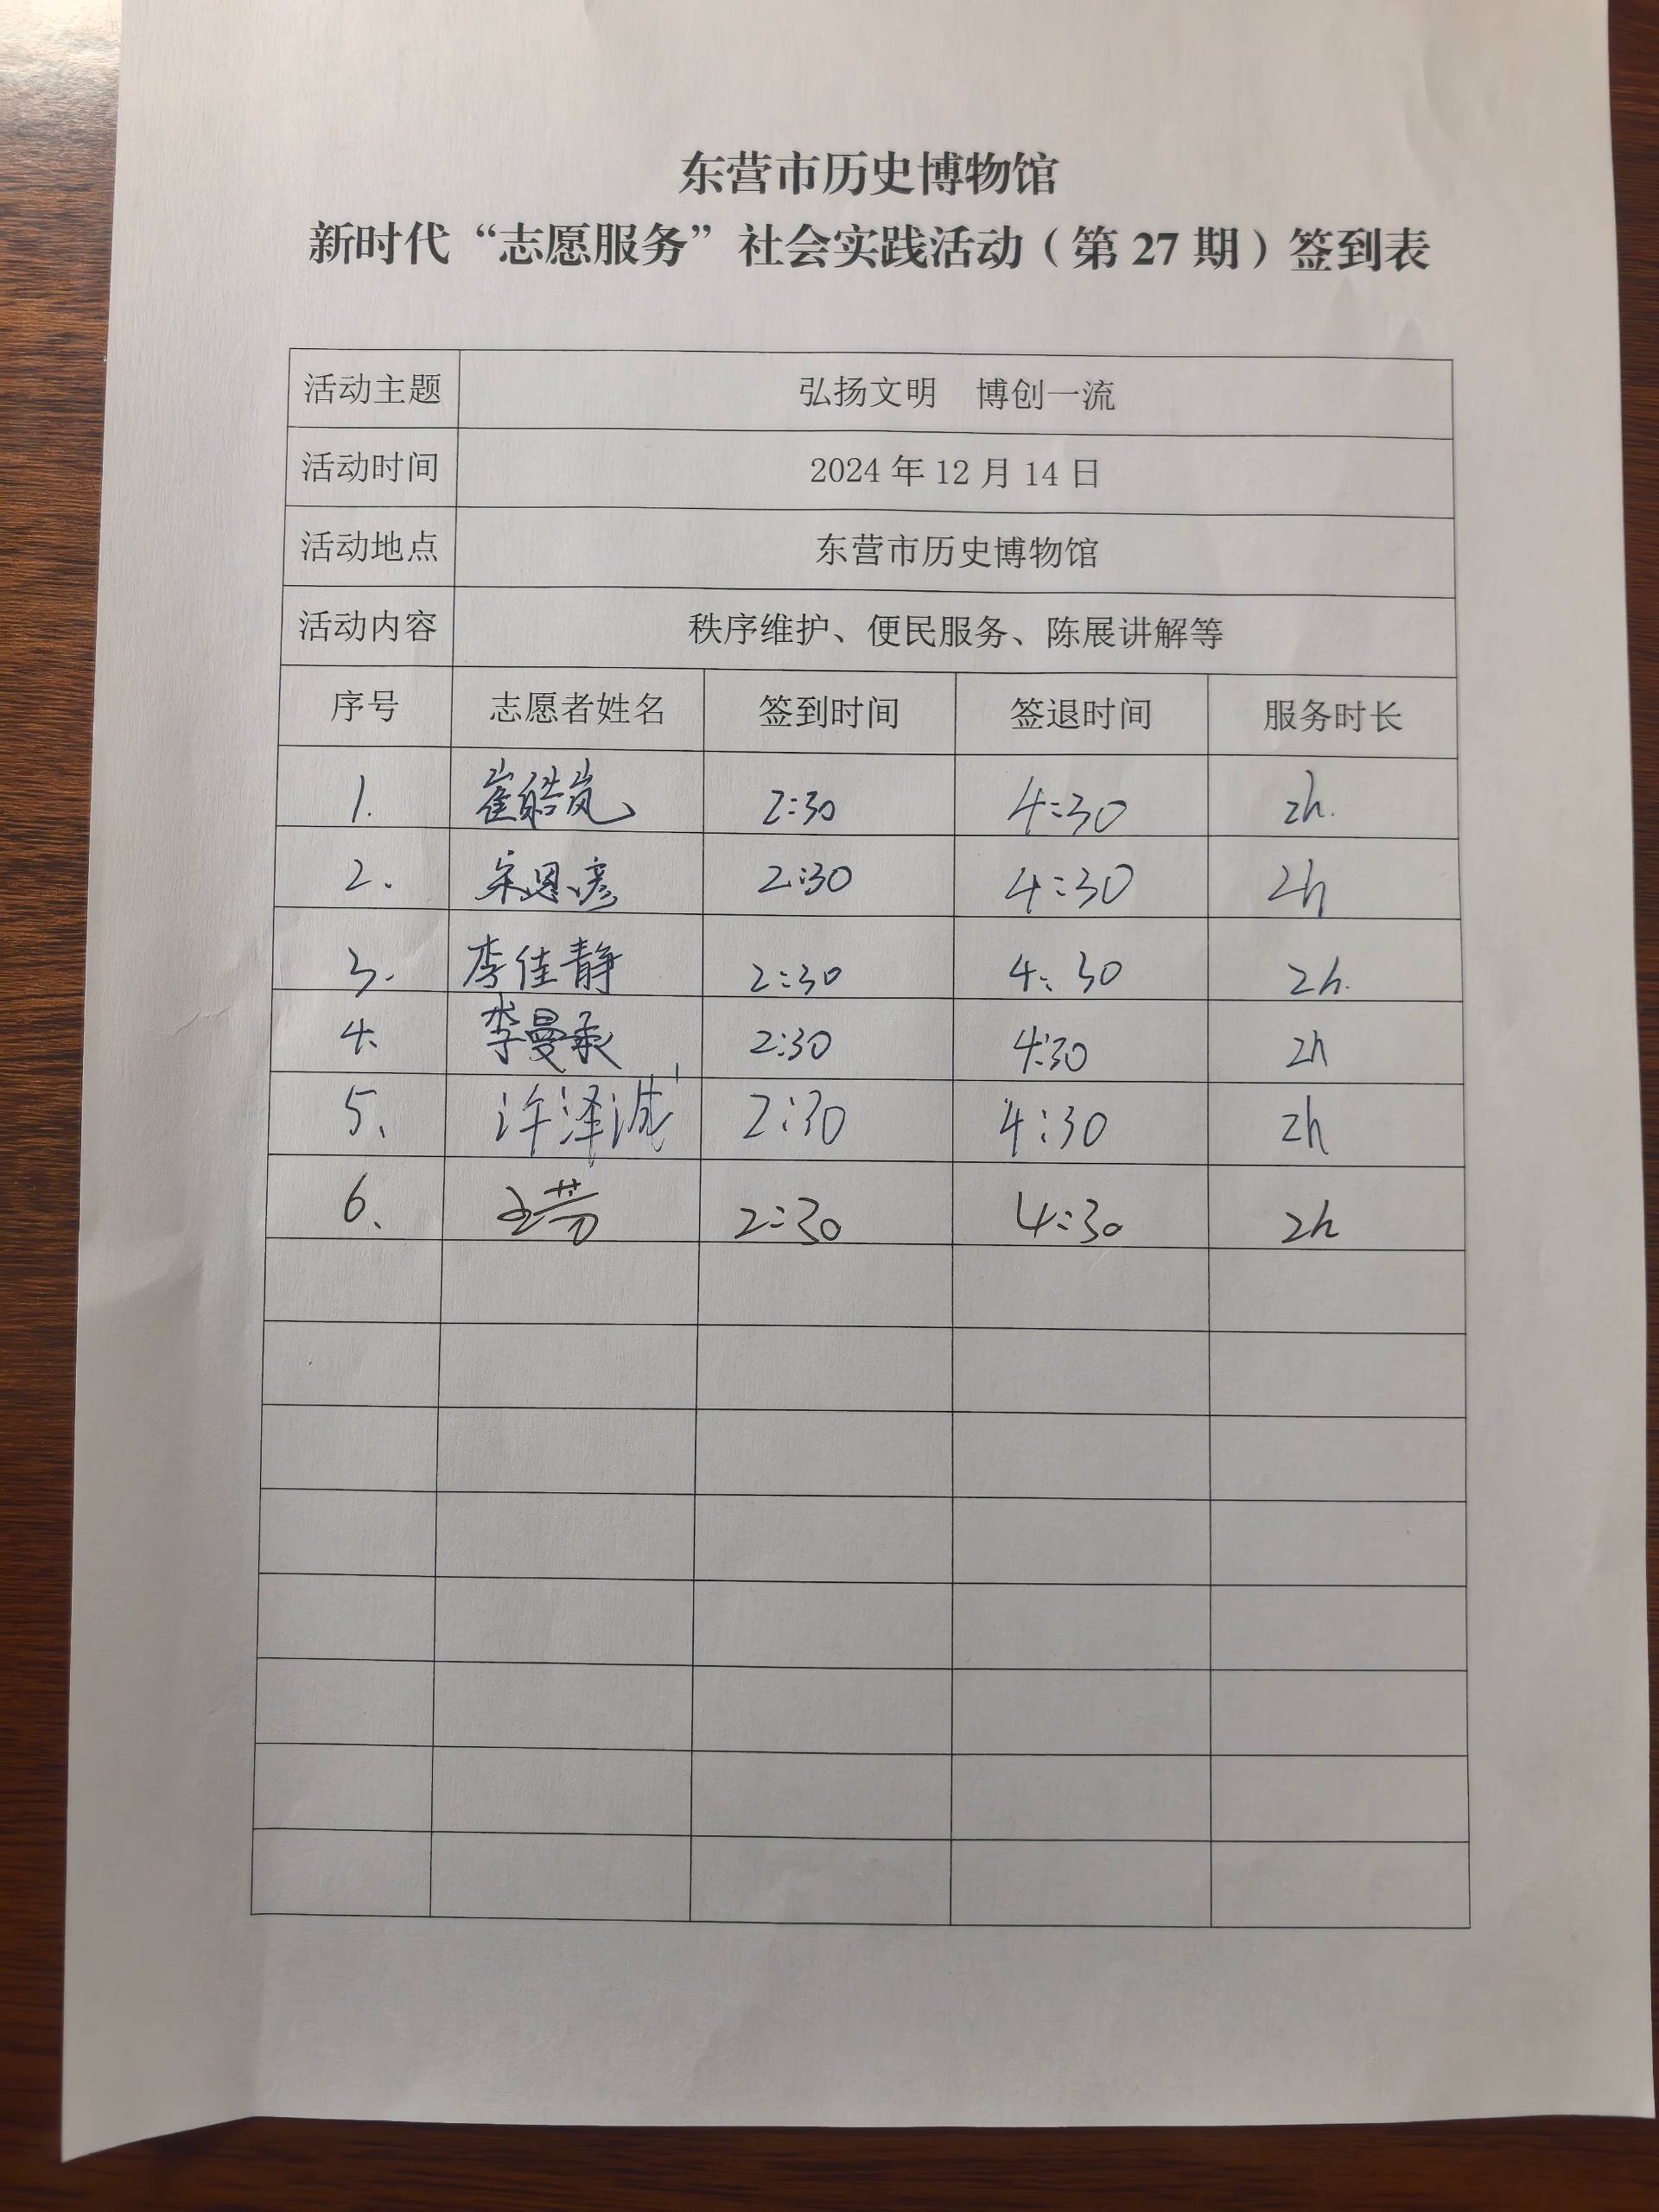 东营市历史博物馆
新时代“志愿服务”社会实践活动（第 27 期）签到表
活动主题 弘扬文明 博创一流
活动时间 2024 年 12 月 14 日
活动地点 东营市历史博物馆
活动内容 秩序维护、便民服务、陈展讲解等
序号 志愿者姓名 签到时间 签退时间 服务时长
1. 崔皓岚 2:30 4:30 2h.
2. 宋恩彦 2:30 4:30 2h
3. 李佳静 2:30 4:30 2h.
4. 李曼 2:30 4:30 2h
5、 许泽诚 2:30 4:30 2h
6、 王芳 2:30 4:30 2h